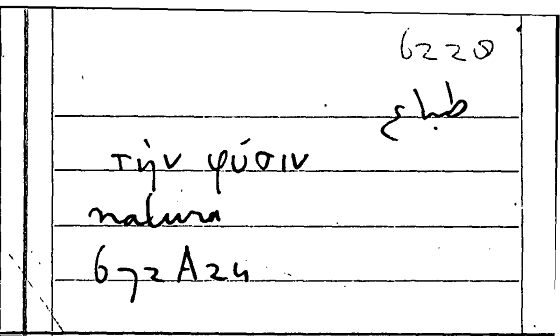 6220
طباع
τὴν φύσιν
natura
672A24